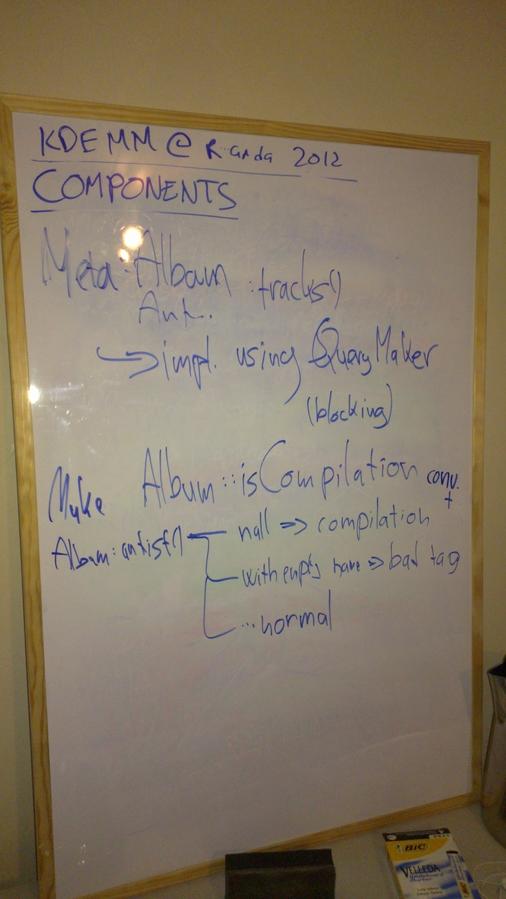 KDEMM @ Randa 2012
COMPONENTS
Meta::Album ::tracks()
impl. using QueryMaker
(blocking)
Album::isCompilation conv.
+
Myke
Album::artist() null => compilation
with empty name => bad tag
...normal
BIC
VELLEDA